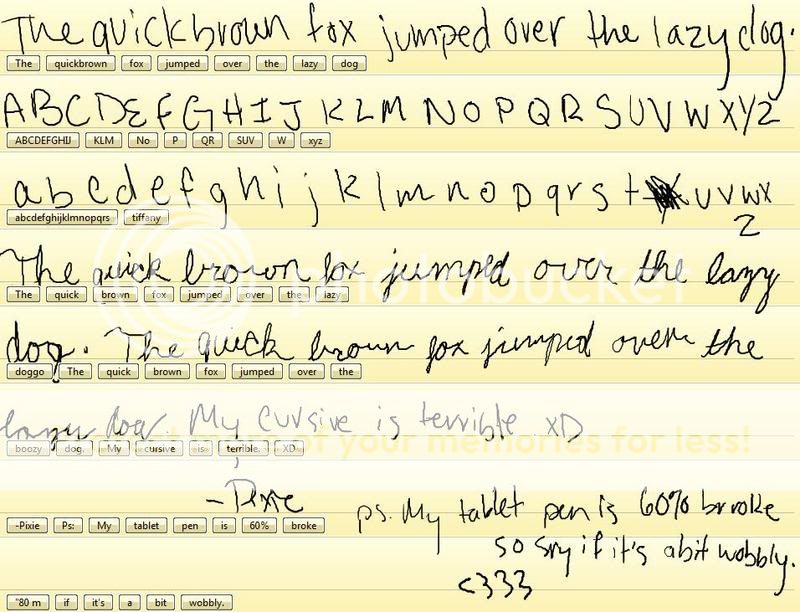 The quick brown fox jumped over the lazy dog.
The quickbrown fox jumped over the lazy dog
ABCDEFGHIJKLMNOPQRSUVWXYZ
ABCDEFGHIJ KLM No P QR SUV W xyz
abcdefghijklmnopqrst uvwx
z
abcdefghijklmnopqrs tiffany
The quick brown fox jumped over the lazy
The quick brown fox jumped over the lazy
dog. The quick brown fox jumped over the
doggo The quick brown fox jumped over the
lazy dog My cursive is terrible XD
boozy dog. My cursive is terrible. XD
-Pixie
ps. My tablet pen is 60% broke
-Pixie Ps: My tablet pen is 60% broke
so sry if it's a bit wobbly.
<333
"80 m if it's a bit wobbly.
photobucket
of your memories for less!